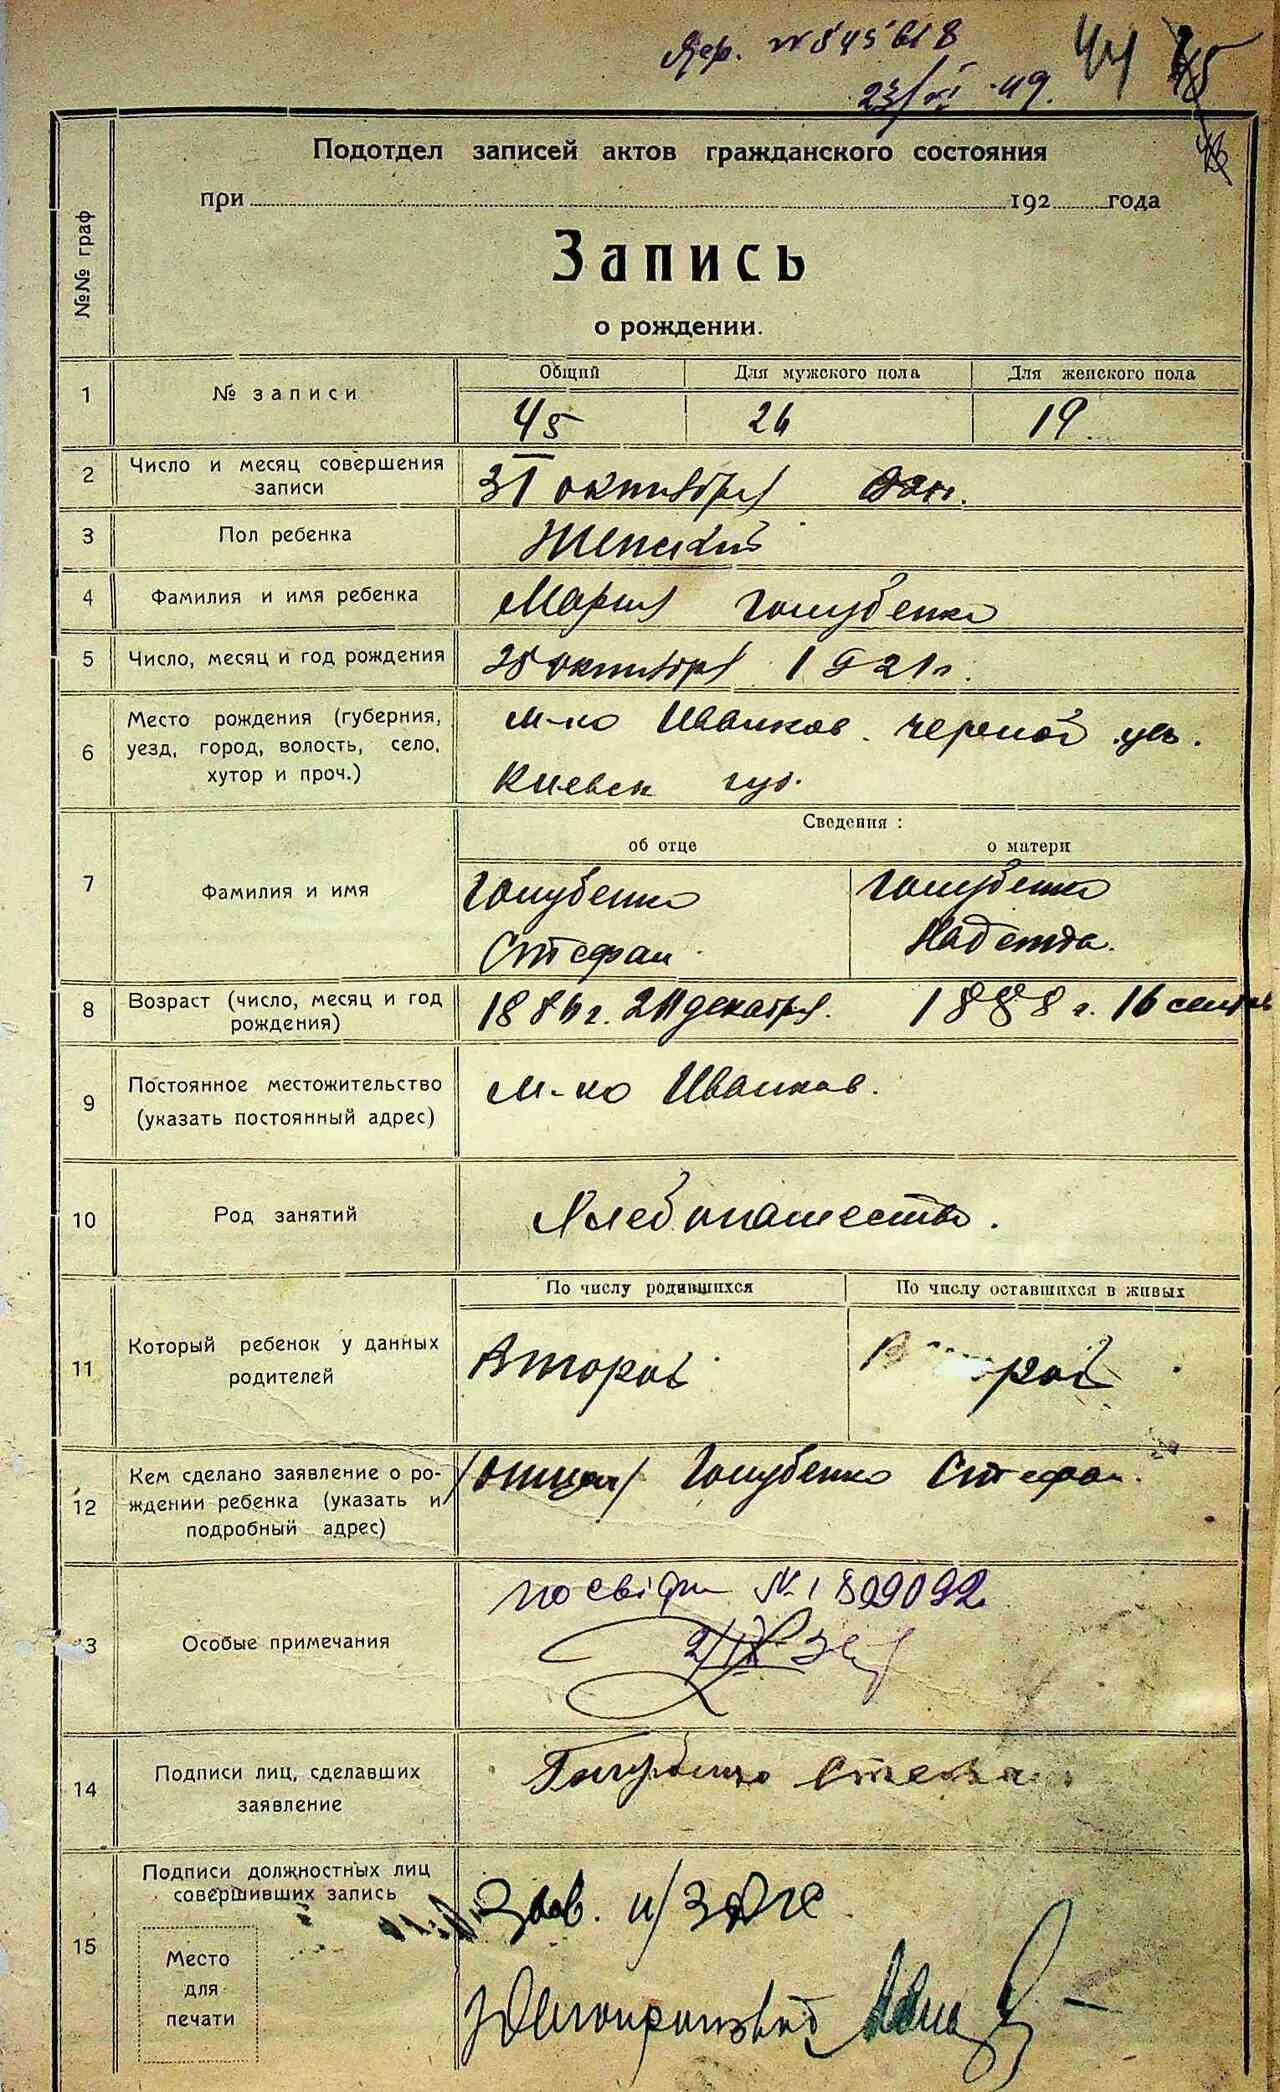 23/XI 49.
44
Подотдел записей актов гражданского состояния
при 192 года
Запись
о рождении.
№№ граф
Общий Для мужского пола Для женского пола
1 № записи 45 26 19
2 Число и месяц совершения
записи
31 октября
3 Пол ребенка Женский
4 Фамилия и имя ребенка Мария Голубенко
5 Число, месяц и год рождения 28 октября 1921 г.
6 Место рождения (губерния,
уезд, город, волость, село,
хутор и проч.)
м-ко Иванков
Киевск губ.
Сведения:
об отце о матери
7 Фамилия и имя
Голубенко Голубенко
Стефан Надежда.
8 Возраст (число, месяц и год
рождения)
декабря. 1888 г. 16 сентяб
9 Постоянное местожительство
(указать постоянный адрес)
м-ко Иванков.
10 Род занятий Хлебопашество.
По числу родившихся По числу оставшихся в живых
11 Который ребенок у данных
родителей
Второй Второй
12 Кем сделано заявление о ро-
ждении ребенка (указать и
подробный адрес)
/отцом/ Голубенко Стефан.
13 Особые примечания
№ 1809092
14 Подписи лиц, сделавших
заявление
Голубенко Стефан
15 Подписи должностных лиц
совершивших запись
Зав. п/загс
Делопроизвод
Место
для
печати